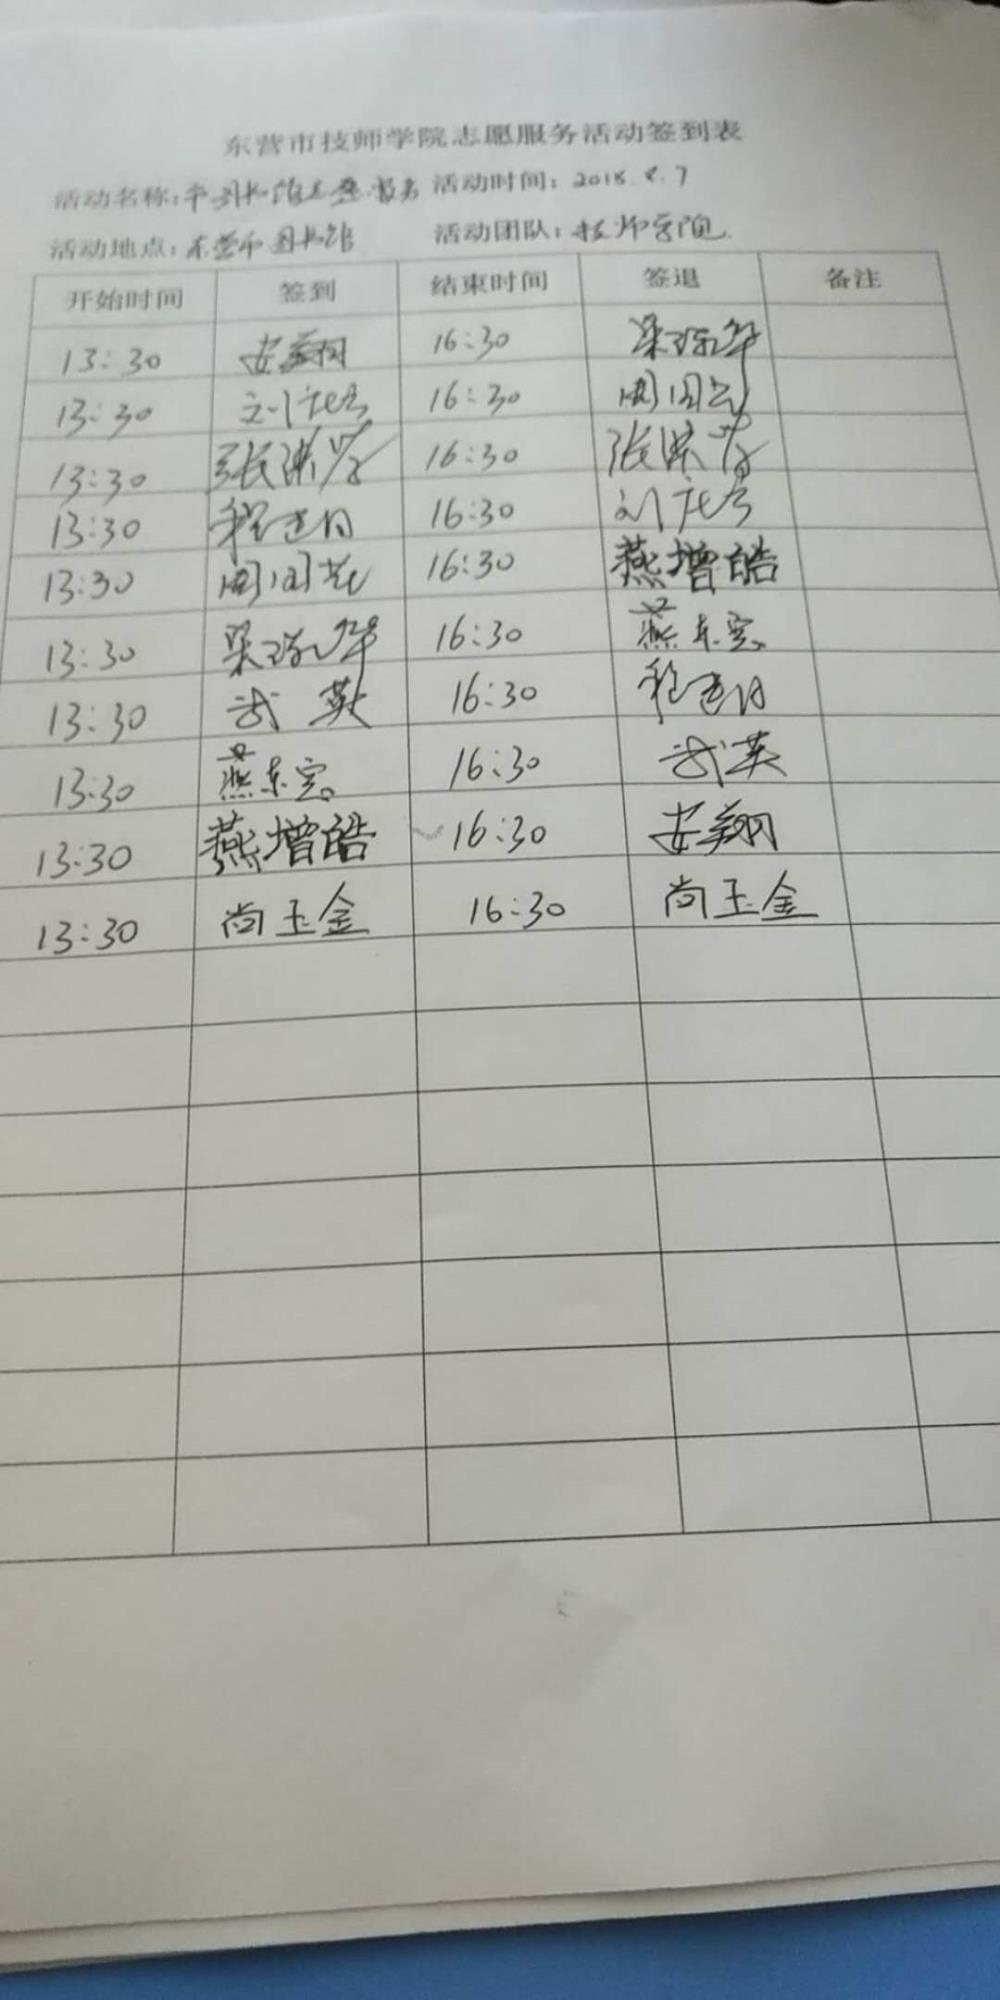 东营市技师学院志愿服务活动签到表
活动名称：市图书馆志愿服务 活动时间：2018.8.7
活动地点：东营市图书馆 活动团队：技师学院
开始时间 签到 结束时间 签退 备注
13:30 安翔 16:30 梁琼华
13:30 刘 16:30 周国
13:30 张洪 16:30 张洪
13:30 程 16:30 刘
13:30 周国花 16:30 燕增皓
13:30 梁琼华 16:30 燕东宾
13:30 武英 16:30 程
13:30 燕东宾 16:30 武英
13:30 燕增皓 16:30 安翔
13:30 尚玉金 16:30 尚玉金